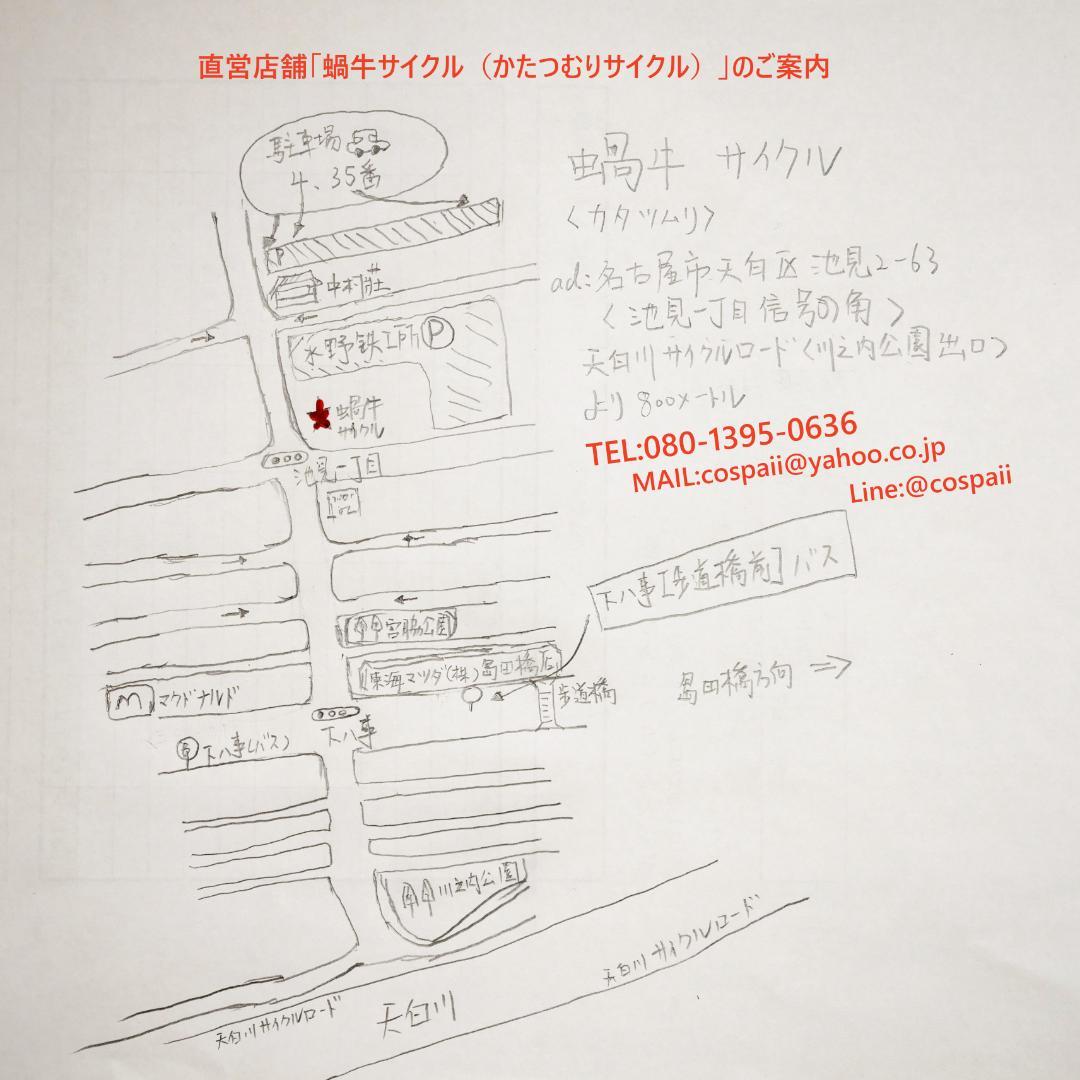 直営店舗「蝸牛サイクル（かたつむりサイクル）」のご案内
駐車場
4、35番
P
中村荘
水野鉄工所 P
蝸牛
サイクル
池見一丁目
宮脇公園
東海マツダ(株)島田橋店
M マクドナルド
歩道橋
下八事
下八事(バス)
川之内公園
天白川サイクルロード
天白川サイクルロード
天白川
蝸牛 サイクル
〈カタツムリ〉
ad:名古屋市天白区池見2-63
〈池見一丁目信号の角〉
天白川サイクルロード〈川之内公園出口〉
より 800メートル
TEL:080-1395-0636
MAIL:cospaii@yahoo.co.jp
Line:@cospaii
下八事[歩道橋前]バス
島田橋方向 ⇒